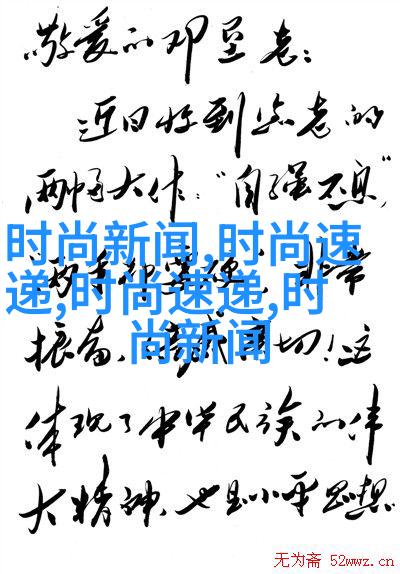 敬爱的邓垦老：
近日收到您老的
两幅大作："自强不息"
时尚新闻,时尚速
递,时尚速递,时
尚新闻
非常
振奋、切！这
体现了中华民族的伟
大精神，也是小平思想
无为斋 52wwz.cn